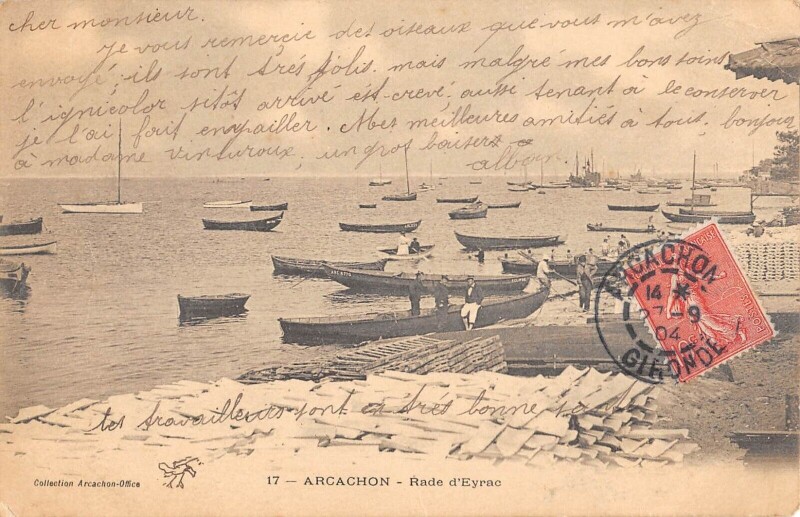 cher monsieur.
Je vous remercie des oiseaux que vous m'avez
envoyé; ils sont très jolis. mais malgré mes bons soins
l'ignicolor sitôt arrivé est crevé. aussi tenant à le conserver
je l'ai fait empailler. Mes meilleures amitiés à tous, bonjour
à madame Vinturoux, un gros baiser à
alban.
ARCACHON
14 *
27-9
04
GIRONDE
tes travailleurs sont en très bonne santé
Collection Arcachon-Office
17 — ARCACHON - Rade d'Eyrac